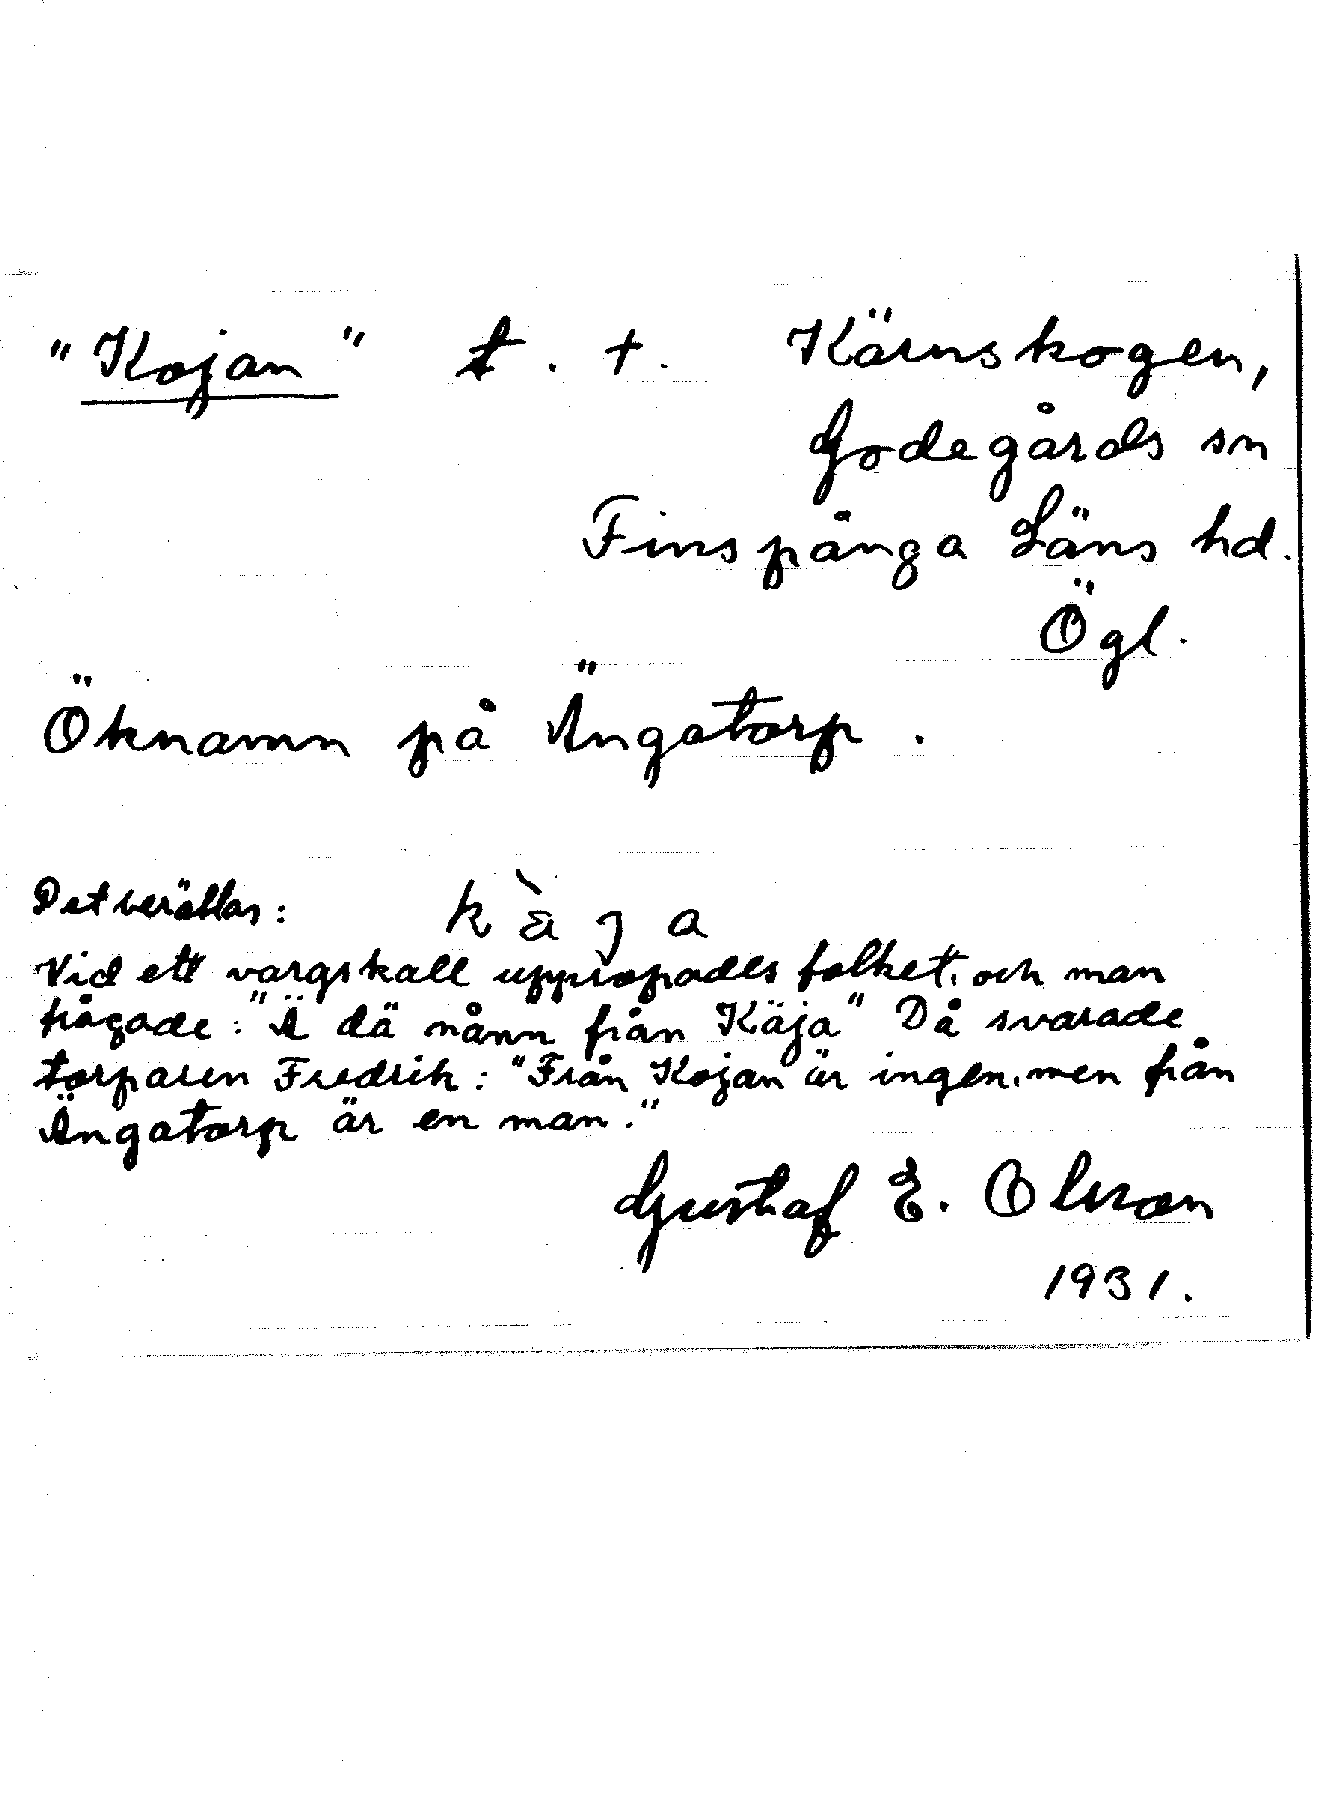 "Kojan" t. †. Kärnskogen,
Godegårds sn
Finspånga Läns hd.
Ögl.
Öknamn på Ängatorp.
Det berättas: kàja
Vid ett vargskall uppropades folket, och man
frågade: "Ä dä nånn från Käja" Då svarade
torparen Fredrik: "Från Kojan är ingen, men från
Ängatorp är en man."
Gustaf E. Olsson
1931.